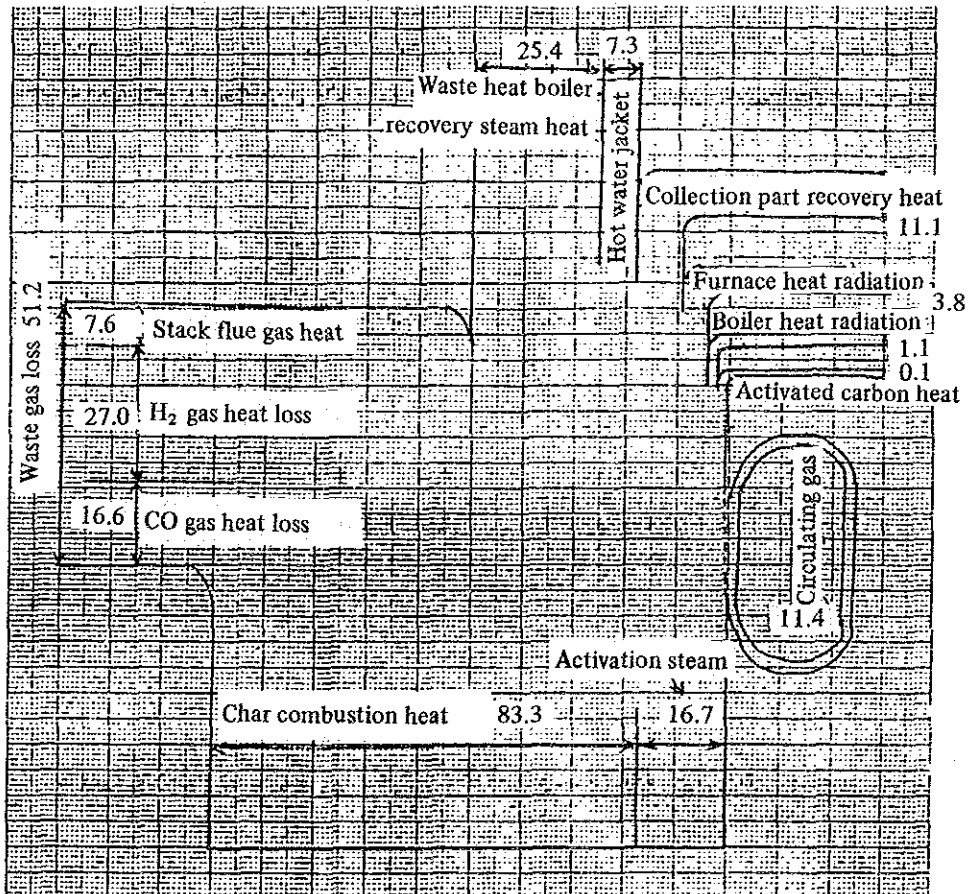 25.4
7.3
Waste heat boiler
recovery steam heat
Hot water jacket
Collection part recovery heat
11.1
Furnace heat radiation
3.8
Boiler heat radiation
1.1
0.1
Activated carbon heat
Waste gas loss 51.2
7.6
Stack flue gas heat
27.0
H₂ gas heat loss
16.6
CO gas heat loss
Circulating gas
11.4
Activation steam
Char combustion heat 83.3
16.7